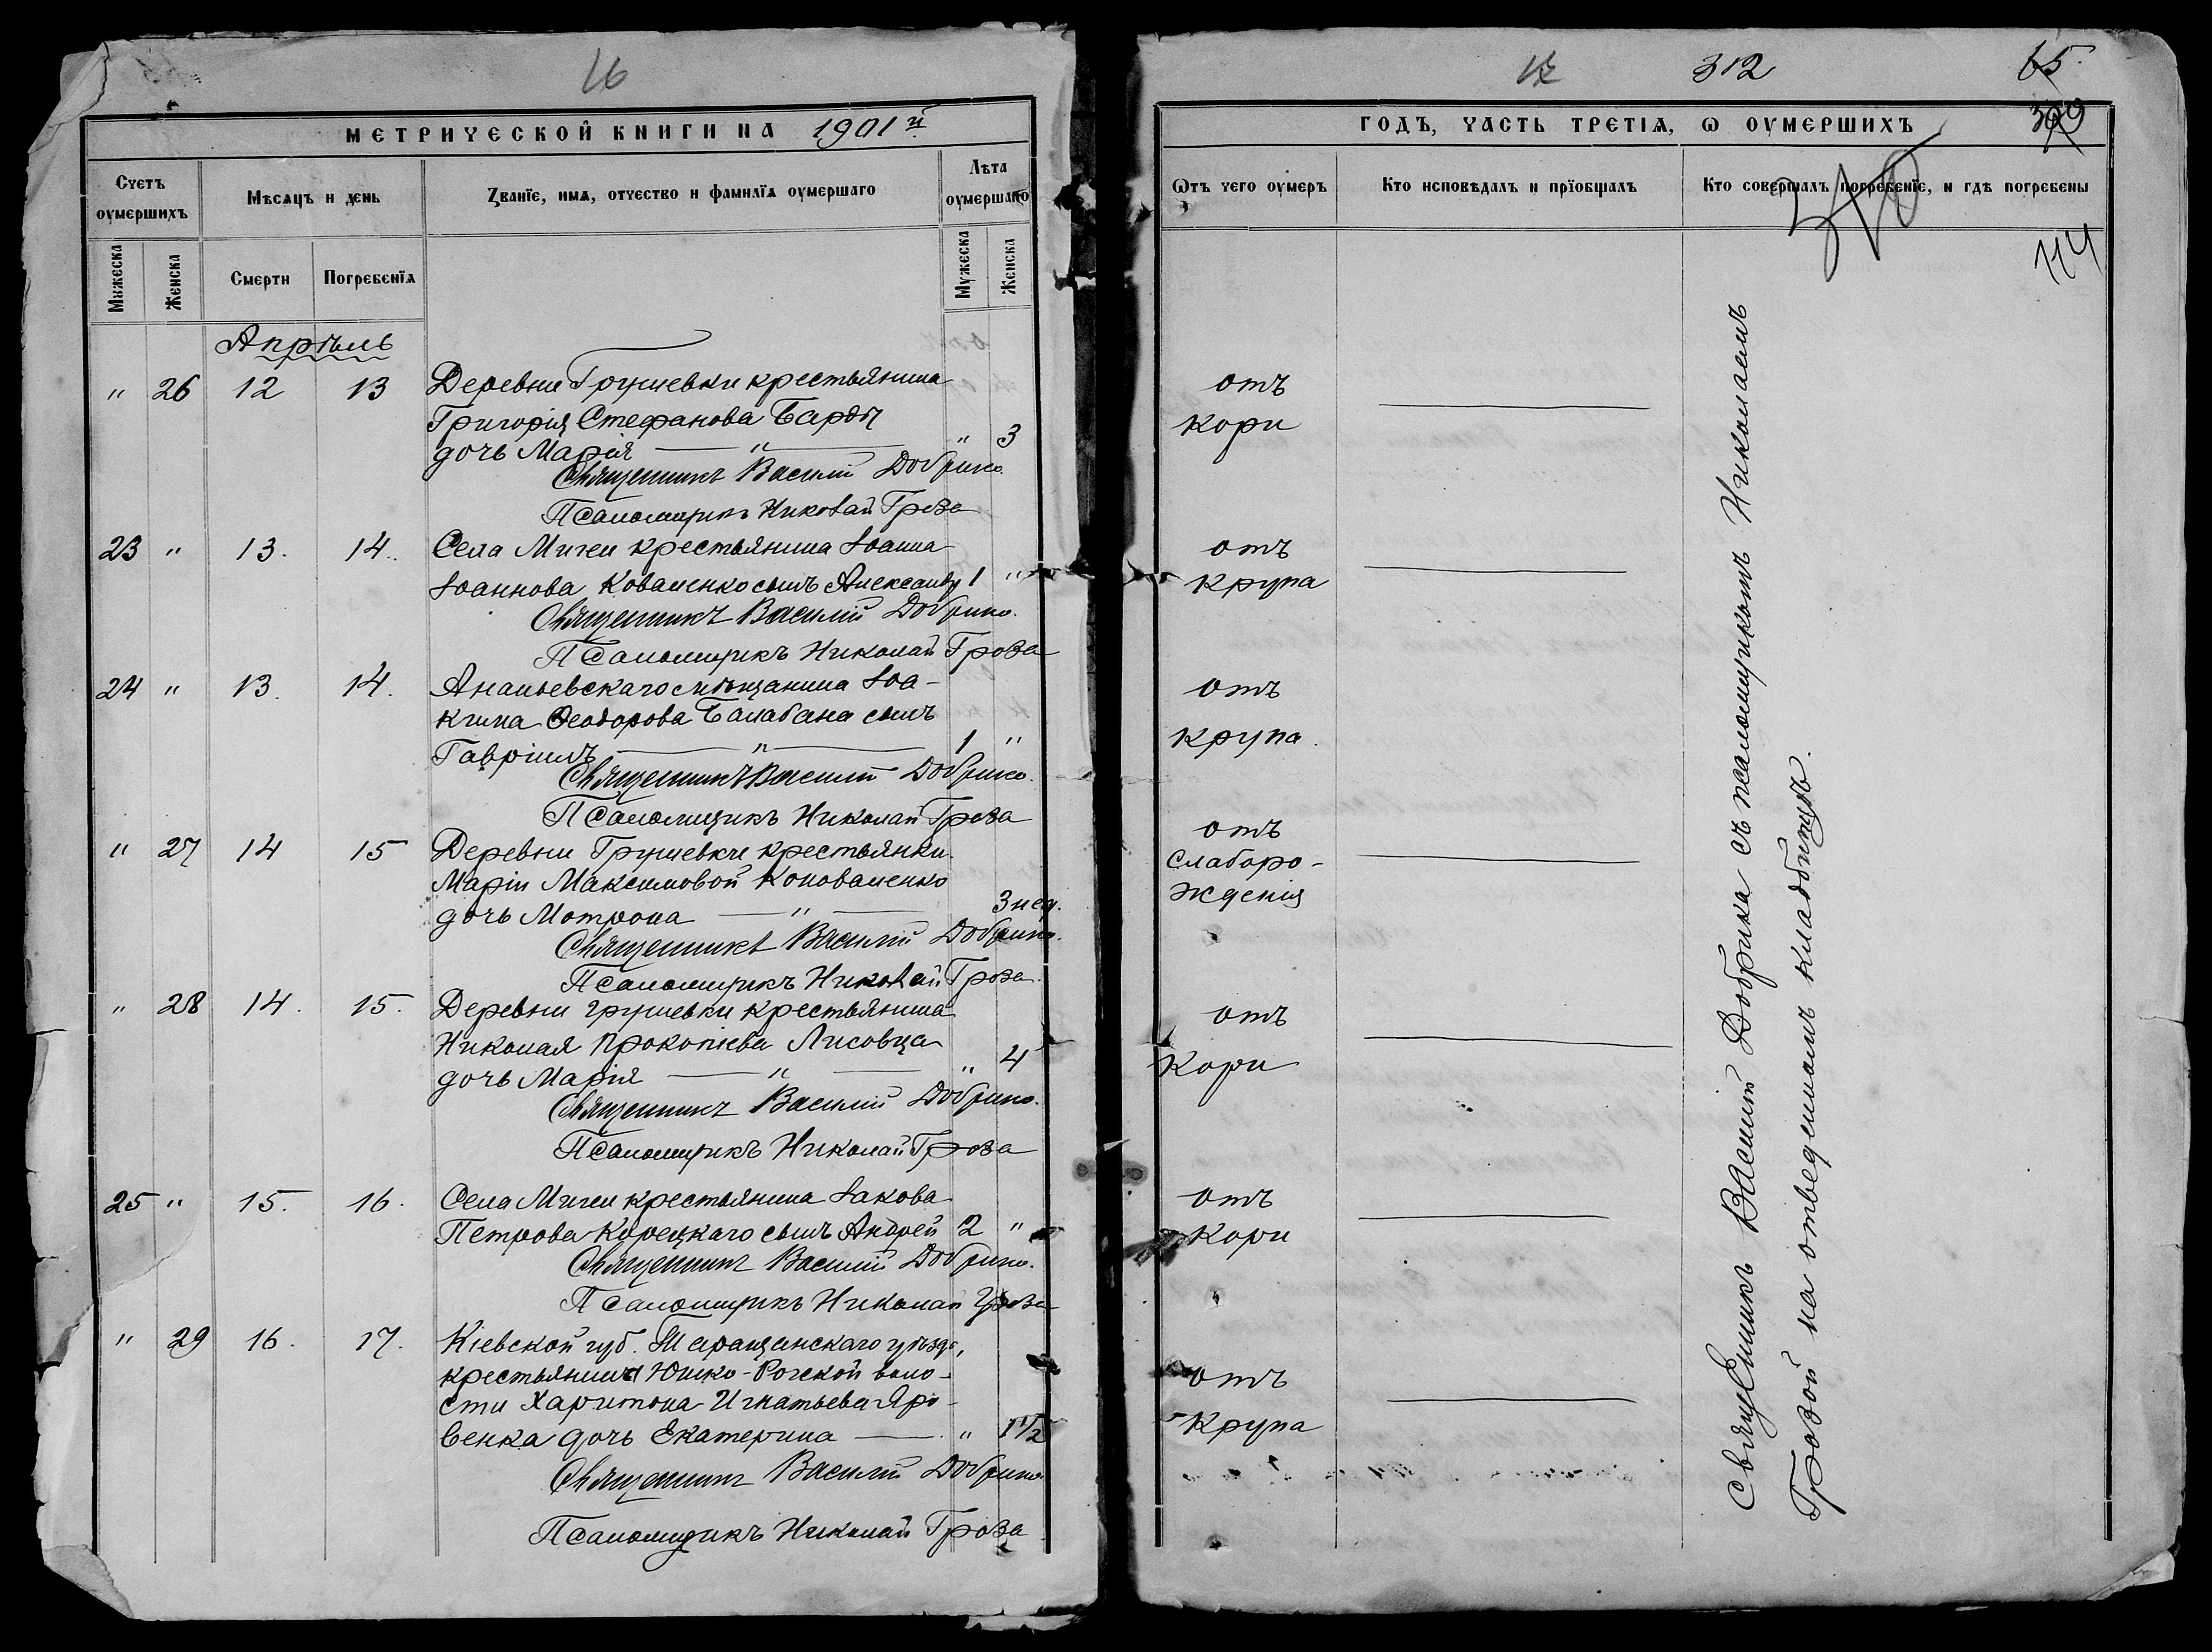 16
МЕТРИЧЕСКОЙ КНИГИ НА 1901й
Счетъ умершихъ
Мѣсяцъ и день
Званїе, имя, отчество и фамилїя оумершаго
Лѣта оумершаго
Мужеска
Женска
Смерти
Погребенїя
Мужеска
Женска
Апрѣль
" 26 12 13 Деревни Грушевки крестьянина
Григорія Стефанова Барды
дочь Марія — " — " 3
Священникъ Василій Добрико.
Псаломщикъ Николай Гроза
23 " 13. 14. Села Мигеи крестьянина Іоанна
Іоаннова Коваленко сынъ Александръ 1 "
Священникъ Василій Добрико.
Псаломщикъ Николай Гроза
24 " 13. 14. Ананьевскаго мѣщанина Іоа-
кима Ѳеодорова Балабана сынъ
Гавріилъ — " — 1 "
Священникъ Василій Добрико.
Псаломщикъ Николай Гроза
" 27 14 15 Деревни Грушевки крестьянки
Маріи Максимовой Коноваленко
дочь Мотрона — " — 3 нед.
Священникъ Василій Добрико.
Псаломщикъ Николай Гроза.
" 28 14. 15. Деревни Грушевки крестьянина
Николая Прокопіева Лисовца
дочь Марія — " — " 4
Священникъ Василій Добрико.
Псаломщикъ Николай Гроза
25 " 15. 16. Села Мигеи крестьянина Іакова
Петрова Корецкаго сынъ Андрей 2 "
Священникъ Василій Добрико.
Псаломщикъ Николай Гроза
" 29 16. 17. Кіевской губ. Таращанскаго уѣзда,
крестьянина Юшко-Рогской воло-
сти Харитона Игнатьева Яро-
венка дочь Екатерина — " 1 1/2
Священникъ Василій Добрико
Псаломщикъ Николай Гроза
312
65.
309
310
114
ГОДЪ, ЧАСТЬ ТРЕТІЯ, Ѡ ОУМЕРШИХЪ
Ѿтъ чего оумеръ
Кто исповѣдалъ и прїобщалъ
Кто совершалъ погребенїе, и гдѣ погребены
отъ
кори
отъ
крупа
отъ
крупа.
отъ
слаборо-
жденія
отъ
кори
отъ
кори
отъ
крупа
Священникъ Василій Добрика съ псаломщикомъ Николаемъ
Грозой на отведенномъ кладбищѣ.